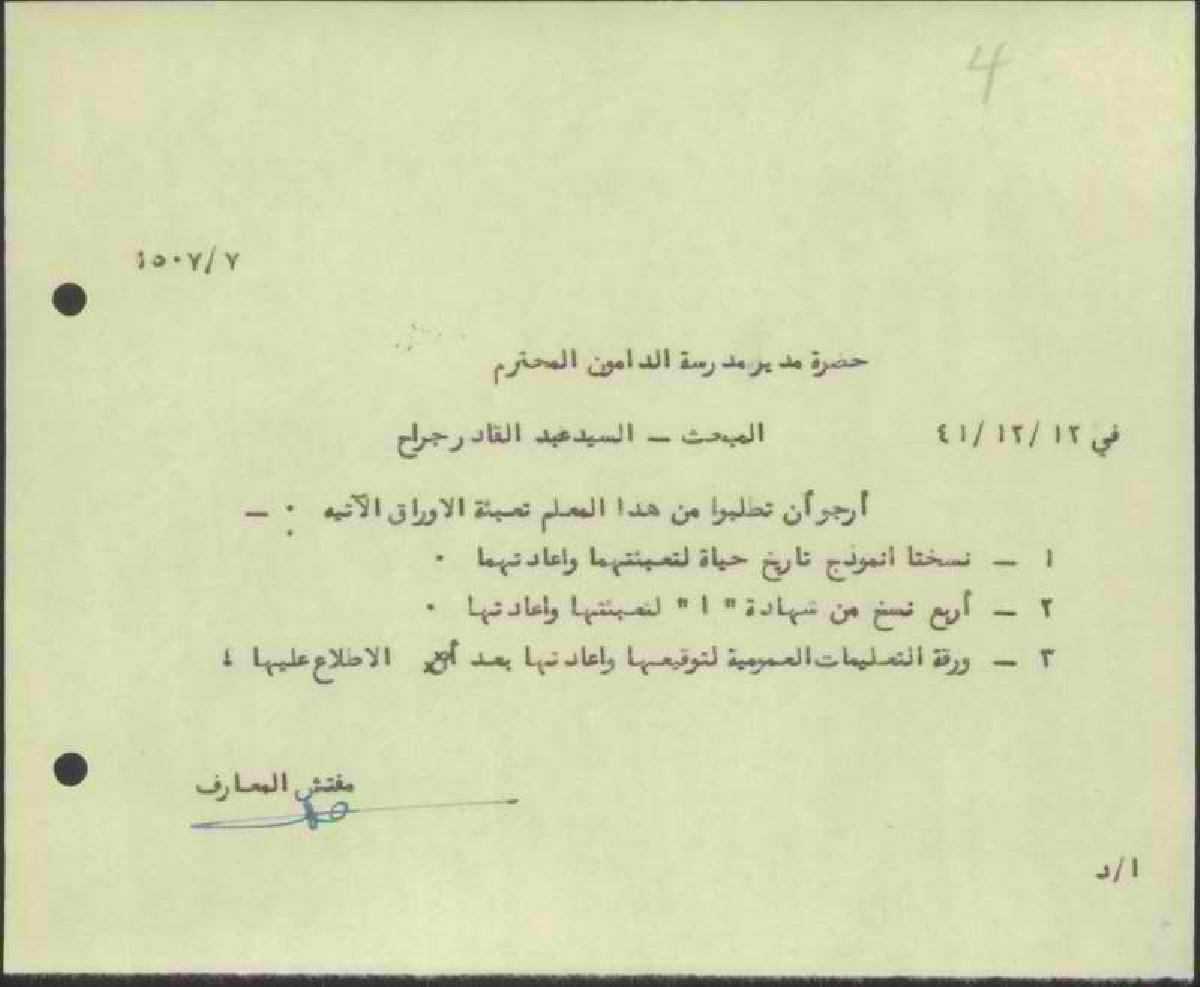 4
١٥٠٧/٧
حضرة مدير مدرسة الدامون المحترم
في ١٢/ ١٢/ ٤١
المبحث – السيد عبد القادر جراح
أرجو أن تطلبوا من هذا المعلم تعبئة الاوراق الآتيه : –
١ – نسختا انموذج تاريخ حياة لتعبئتهما واعادتهما .
٢ – أربع نسخ من شهادة " ا " لتعبئتها واعادتها .
٣ – ورقة التعليمات العمومية لتوقيعها واعادتها بعد الاطلاع عليها ؛
مفتش المعارف
ا/د